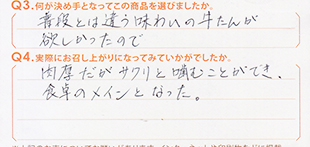 Q3.何が決め手となってこの商品を選びましたか。
普段とは違う味わいの牛たんが
欲しかったので
Q4.実際にお召し上がりになってみていかがでしたか。
肉厚だがサクリと噛むことができ、
食卓のメインとなった。